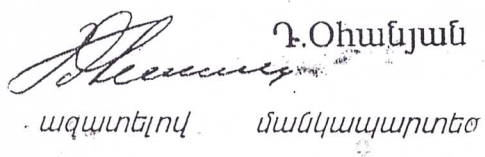 Դ.Օհանյան
ազատելով մանկապարտեզ